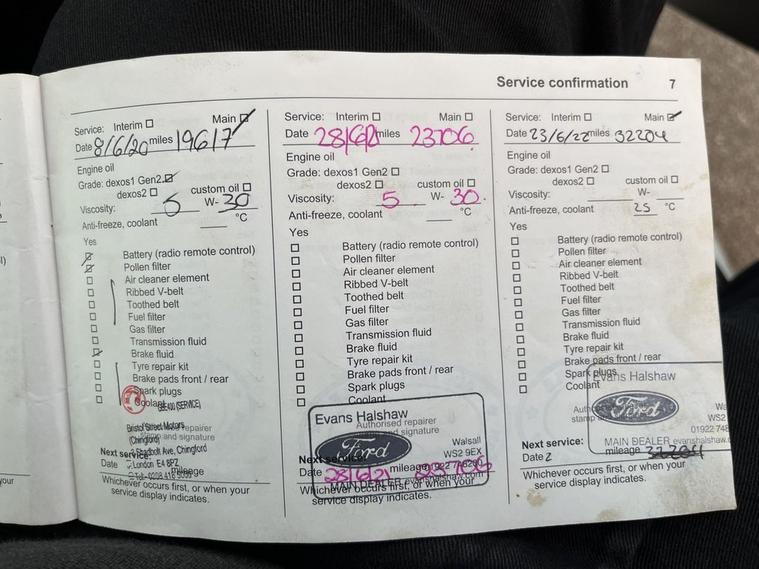 Service confirmation 7
Service: Interim Main
Date 8/6/20 miles 19617
Engine oil
Grade: dexos1 Gen2
dexos2 custom oil
Viscosity: 5 W- 30
Anti-freeze, coolant °C
Yes
Battery (radio remote control)
Pollen filter
Air cleaner element
Ribbed V-belt
Toothed belt
Fuel filter
Gas filter
Transmission fluid
Brake fluid
Tyre repair kit
Brake pads front / rear
Spark plugs
Coolant
(SERVICE)
Bristol Street Motors
(Chingford)
and signature
Ave, Chingford
London E4 8PZ
Next service:
Date mileage
Whichever occurs first, or when your
service display indicates.
Service: Interim Main
Date 28/6/21 miles 23706
Engine oil
Grade: dexos1 Gen2
dexos2 custom oil
Viscosity: 5 W- 30
Anti-freeze, coolant °C
Yes
Battery (radio remote control)
Pollen filter
Air cleaner element
Ribbed V-belt
Toothed belt
Fuel filter
Gas filter
Transmission fluid
Brake fluid
Tyre repair kit
Brake pads front / rear
Spark plugs
Coolant
Evans Halshaw
Authorised repairer
and signature
Ford
Walsall
WS2 9EX
Next service:
Date 28/6/21 mileage 23706
MAIN DEALER
Whichever occurs first, or when your
service display indicates.
Service: Interim Main
Date 23/6/22 miles 32204
Engine oil
Grade: dexos1 Gen2
dexos2 custom oil
Viscosity: W-
Anti-freeze, coolant 25 °C
Yes
Battery (radio remote control)
Pollen filter
Air cleaner element
Ribbed V-belt
Toothed belt
Fuel filter
Gas filter
Transmission fluid
Brake fluid
Tyre repair kit
Brake pads front / rear
Spark plugs
Coolant
Evans Halshaw
Ford
Wa
WS2
01922 748
stamp
Next service:
MAIN DEALER evanshalshaw.c
Date 2 mileage 32204
Whichever occurs first, or when your
service display indicates.